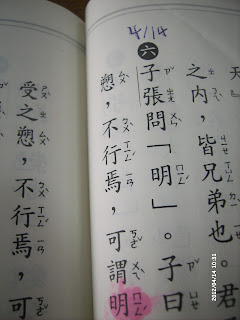 4/14
天』
之內，皆兄弟也。君
六
子張問「明」。子曰
愬，不行焉，可謂明
受之愬，不行焉，可
2012/04/14 10:31